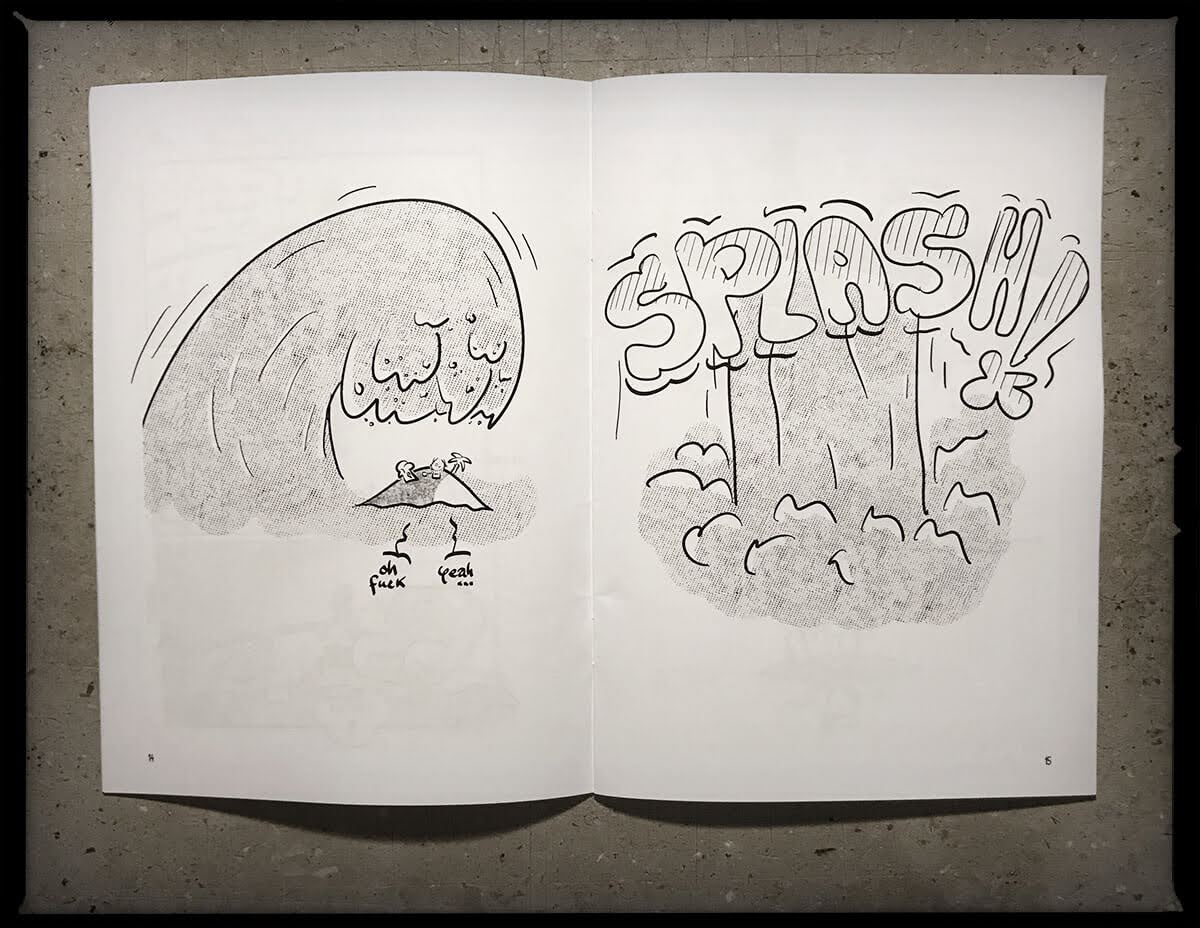 oh
fuck
yeah
...
14
SPLASH!
15